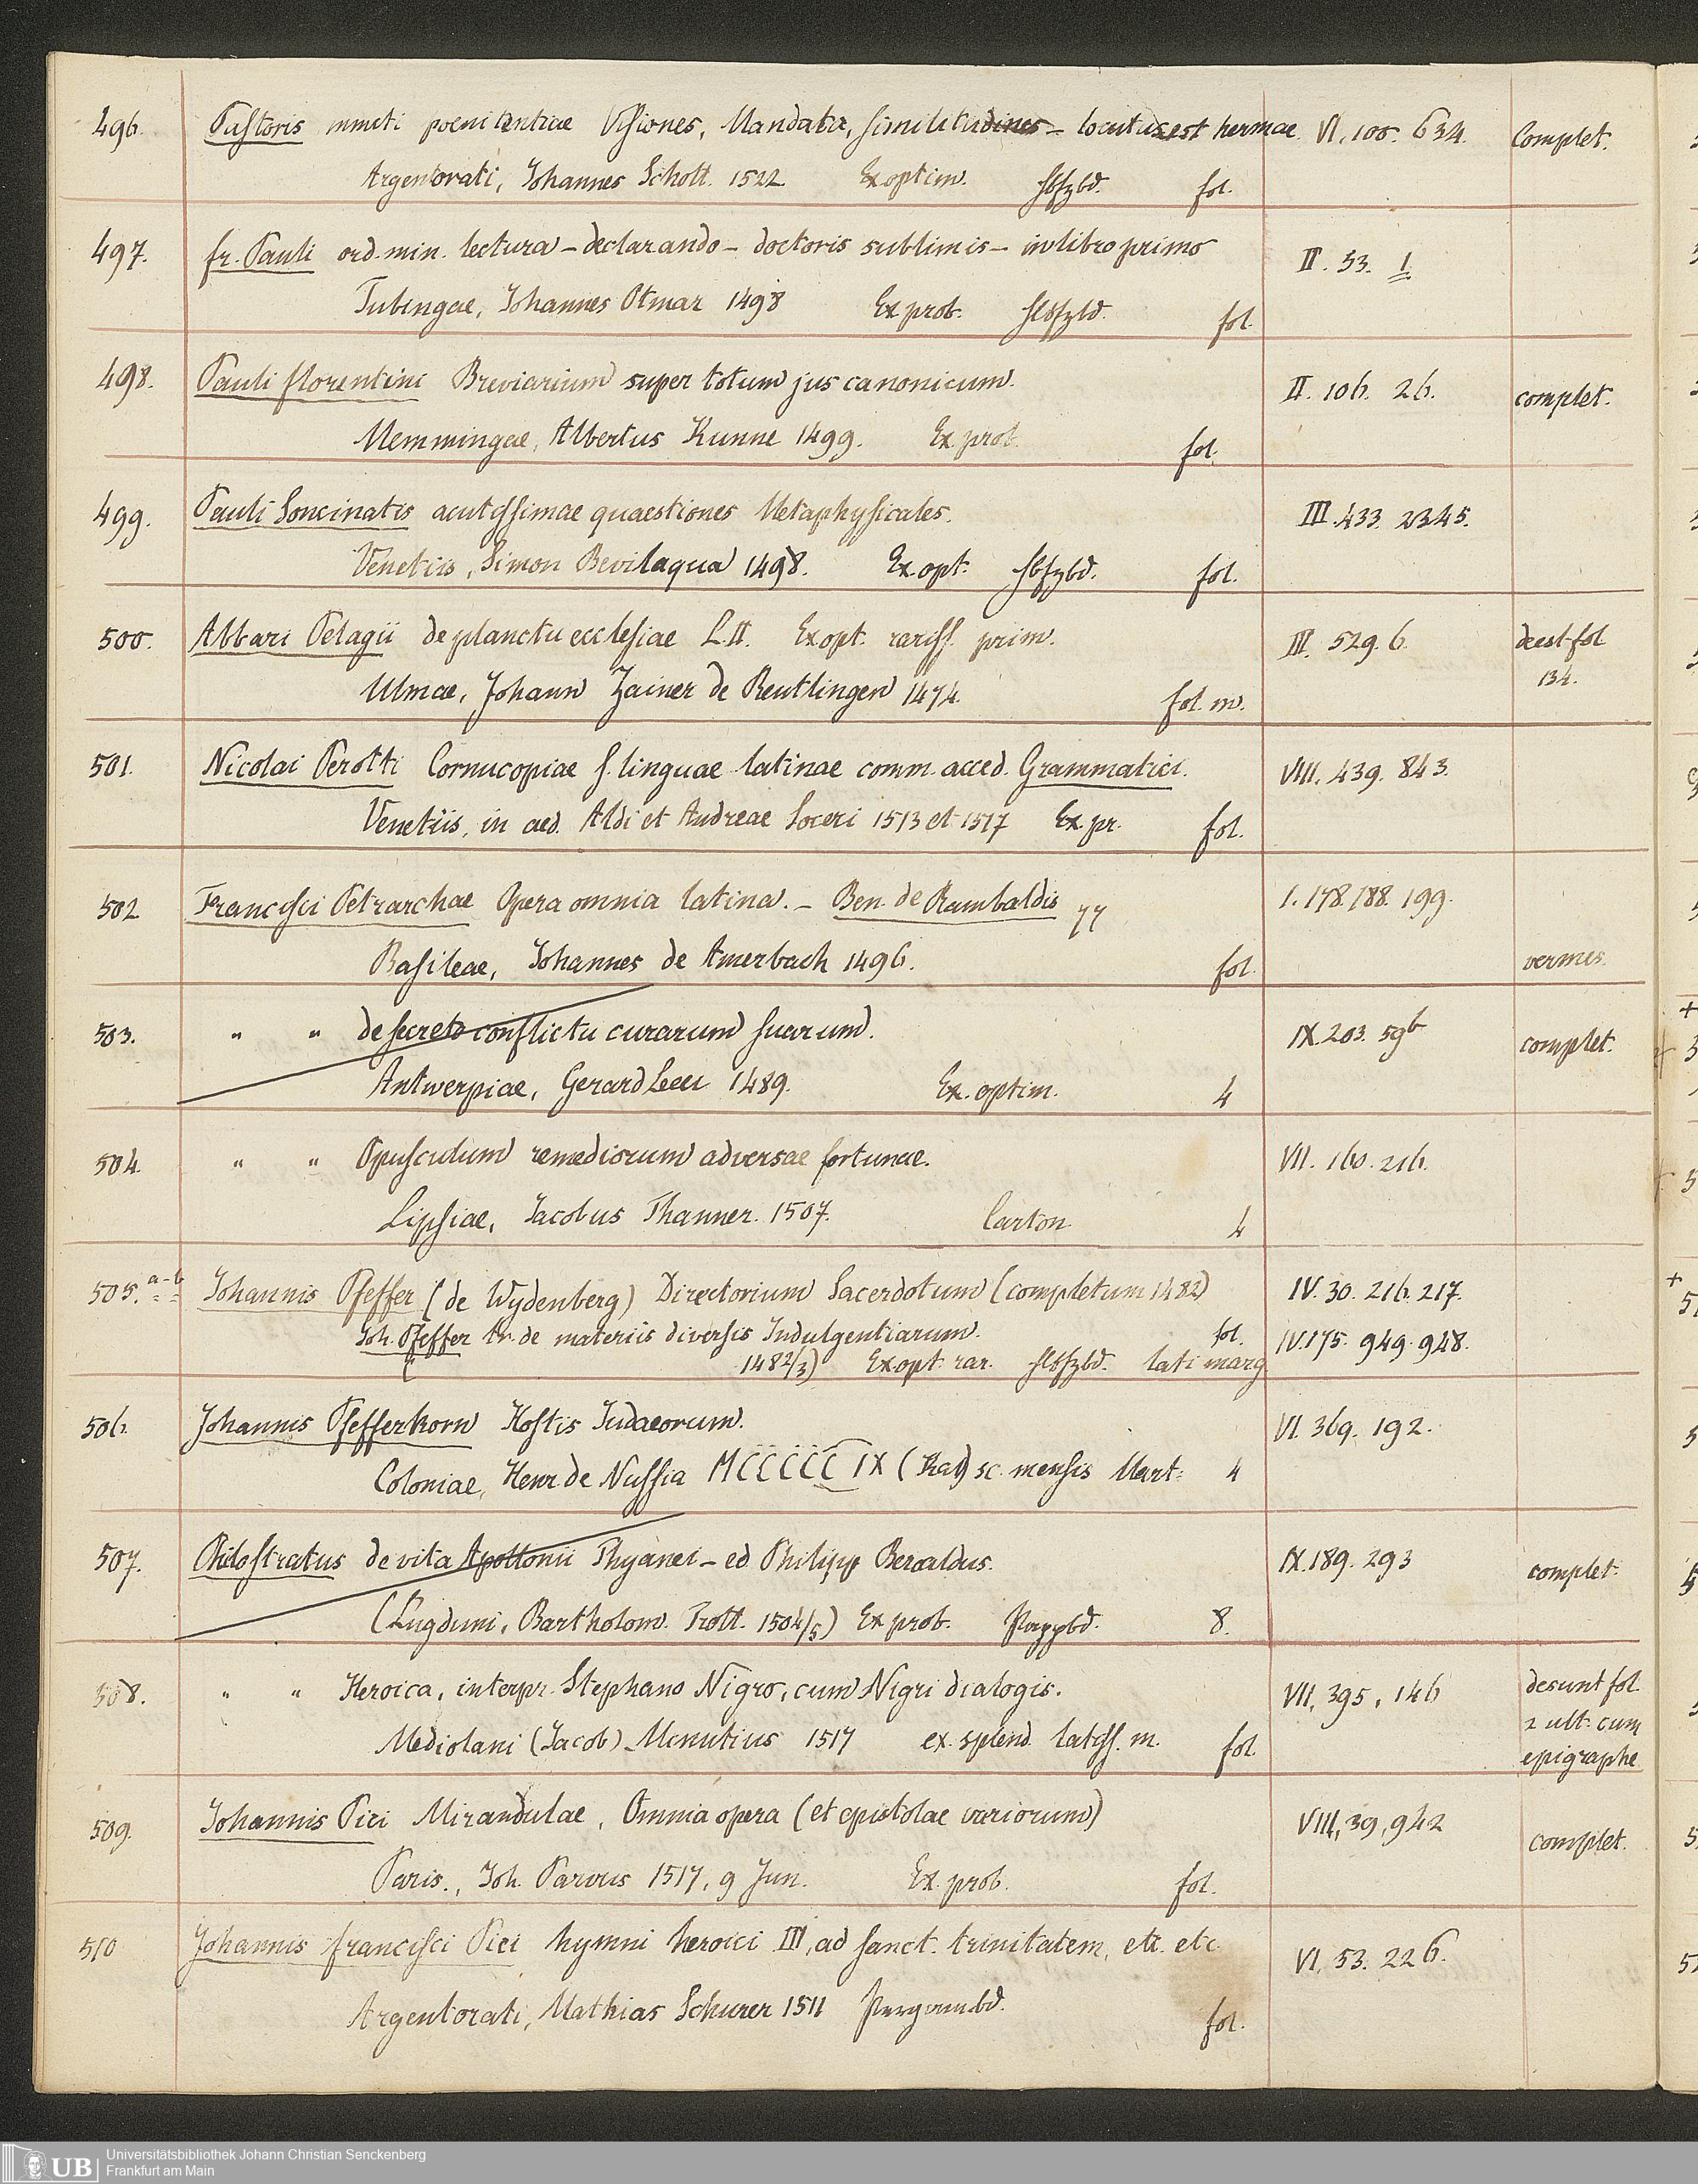 496. Pastoris nuncti poenitentiae Visiones, Mandata, Similitudines – locutus est hermae. VI, 100. 634. Complet.
Argentorati, Johannes Schott. 1522 Ex optim. Hbfzbd. fol.
497. fr. Pauli ord. min. lectura – declarando – doctoris sublimis – in libro primo II. 53. 1
Tubingae, Johannes Otmar 1498 Ex prob. Hbfzbd. fol.
498. Pauli florentini Breviarium super totum jus canonicum. II. 106. 26. complet.
Memmingae, Albertus Kunne 1499. Ex prob. fol.
499. Pauli Soncinatis acutissimae quaestiones Metaphysicales. III. 433. 2345.
Venetiis, Simon Bevilaqua 1498. Ex. opt. Hbfzbd. fol.
500. Alvari Pelagii de planctu ecclesiae L. II. Ex opt. rariss. prim. III. 529. 6. deest fol
134.
Ulmae, Johann Zainer de Reutlingen 1474. fol. m.
501. Nicolai Perotti Cornucopiae s. linguae latinae comm. acced. Grammatici. VIII. 439. 843.
Venetiis, in aed. Aldi et Andreae Soceri 1513 et 1517 Ex. pr. fol.
502 Francisci Petrarchae Opera omnia latina. – Ben. de Rambaldis I. 178. 188. 199.
Basileae, Johannes de Amerbach 1496. fol. vermes.
503. " " de secreto conflictu curarum suarum. IX. 203. 59b complet.
Antwerpiae, Gerard Leeu 1489. Ex. optim. 4
504. " " Opusculum remediorum adversae fortunae. VII. 160. 216.
Lipsiae, Jacobus Thanner. 1507. Carton. 4
505. a-b Johannis Pfeffer (de Wydenberg) Directorium Sacerdotum (completum 1482) IV. 30. 216. 217.
Joh. Pfeffer tr. de materiis diversis Indulgentiarum. fol. IV. 175. 949. 948.
1482/3) Ex opt. rar. Hbfzbd. lati marg
506. Johannis Pfefferkorn Hostis Judaeorum. VI. 369. 192.
Coloniae, Henr. de Nussia MCCCCC IX (Kal) sc. mensis Mart. 4
507. Philostratus de vita Apollonii Thyanei – ed. Philipp Beroaldus. IX. 189. 293 complet.
(Lugduni, Bartholom. Trott. 1504/5) Ex prob. Pappbd. 8.
508. " " Heroica, interpr. Stephano Nigro, cum Nigri dialogis. VII, 395, 146 desunt fol.
2 ult. cum
epigraphe
Mediolani (Jacob) Minutius 1517 ex. splend. latiss. m. fol.
509. Johannis Pici Mirandulae, Omnia opera (et epistolae variorum) VIII, 39, 942 complet.
Paris., Joh. Parvus 1517, 9 Jun. Ex. prob. fol.
510 Johannis francisci Pici hymni heroici III, ad sanct. trinitatem, etc. etc. VI. 53. 226.
Argentorati, Mathias Schurer 1511 Pergambd. fol.
UB Universitätsbibliothek Johann Christian Senckenberg
Frankfurt am Main